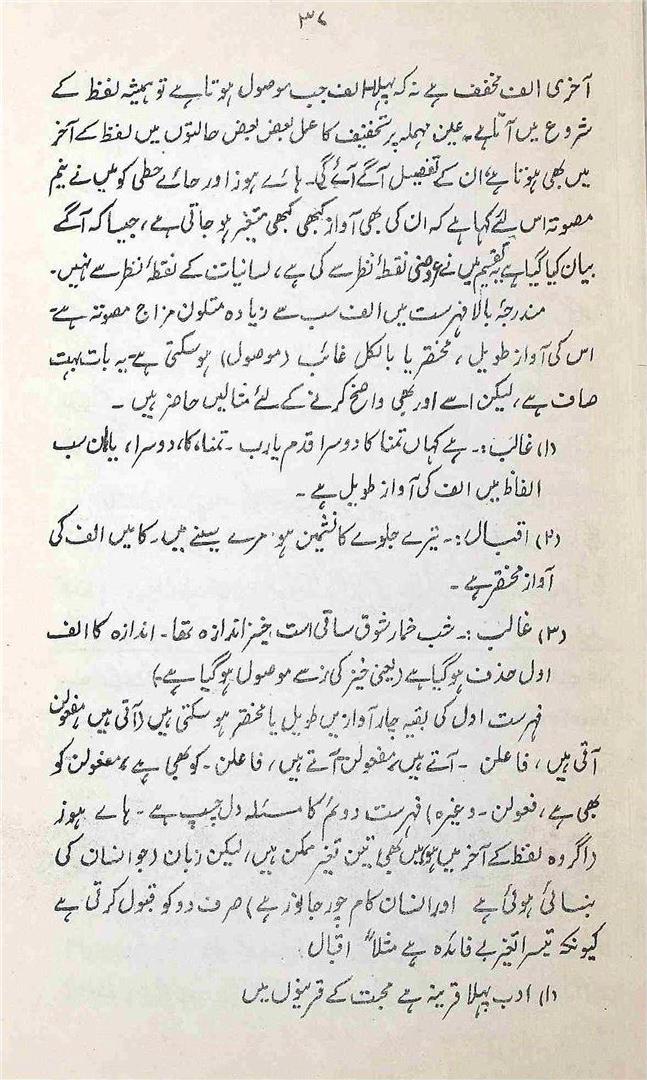 ۳۸
آخری الف مخفف ہے نہ کہ پہلا۔ الف جب موصول ہوتا ہے تو ہمیشہ لفظ کے
شروع میں آتا ہے۔ عین مہملہ پر تخفیف کا عمل بعض بعض حالتوں میں لفظ کے آخر
میں بھی ہوتا ہے، ان کے تفصیل آگے آئے گی۔ ہائے ہوز اور حائے حطی کو میں نے نیم
مصوتہ اس لئے کہا ہے کہ ان کی بھی آواز کبھی کبھی متغیر ہو جاتی ہے، جیسا کہ آگے
بیان کیا گیا ہے یہ تقسیم میں نے عروضی نقطۂ نظر سے کی ہے، لسانیات کے نقطۂ نظر سے نہیں۔
مندرجۂ بالا فہرست میں الف سب سے زیادہ متلون مزاج مصوتہ ہے
اس کی آواز طویل، مختصر یا بالکل غائب (موصول) ہو سکتی ہے یہ بات بہت
صاف ہے، لیکن اسے اور بھی واضح کرنے کے لئے مثالیں حاضر ہیں۔
(۱) غالب:۔ ہے کہاں تمنا کا دوسرا قدم یارب۔ تمنا، کا، دوسرا، یا، ان سب
الفاظ میں الف کی آواز طویل ہے۔
(۲) اقبال:۔ تیرے جلوے کا نشیمن ہو مرے سینے میں۔ کا میں الف کی
آواز مختصر ہے۔
(۳) غالب:۔ شب خمار شوق ساقی است خیز اندازہ تھا۔ اندازہ کا الف
اول حذف ہو گیا ہے (یعنی خیز کی ز سے موصول ہو گیا ہے۔)
فہرست اول کی بقیہ چار آوازیں طویل یا مختصر ہو سکتی ہیں (آتی ہیں مفعولن
آتی ہیں، فاعلن۔ آتے ہیں، مفعولن آتے ہیں، فاعلن۔ کو بھی ہے، مفعولن کو
بھی ہے، فعولن۔ وغیرہ) فہرست دوئم کا مسئلہ دل چسپ ہے۔ ہائے ہوز
(اگر وہ لفظ کے آخر میں ہو) میں بھی تین تغیر ممکن ہیں، لیکن زبان (جو انسان کی
بنائی ہوئی ہے اور انسان کام چور جانور ہے) صرف دو کو قبول کرتی ہے
کیونکہ تیسرا تغیر بے فائدہ ہے مثلاً اقبال
(۱) ادب پہلا قرینہ ہے محبت کے قرینوں میں